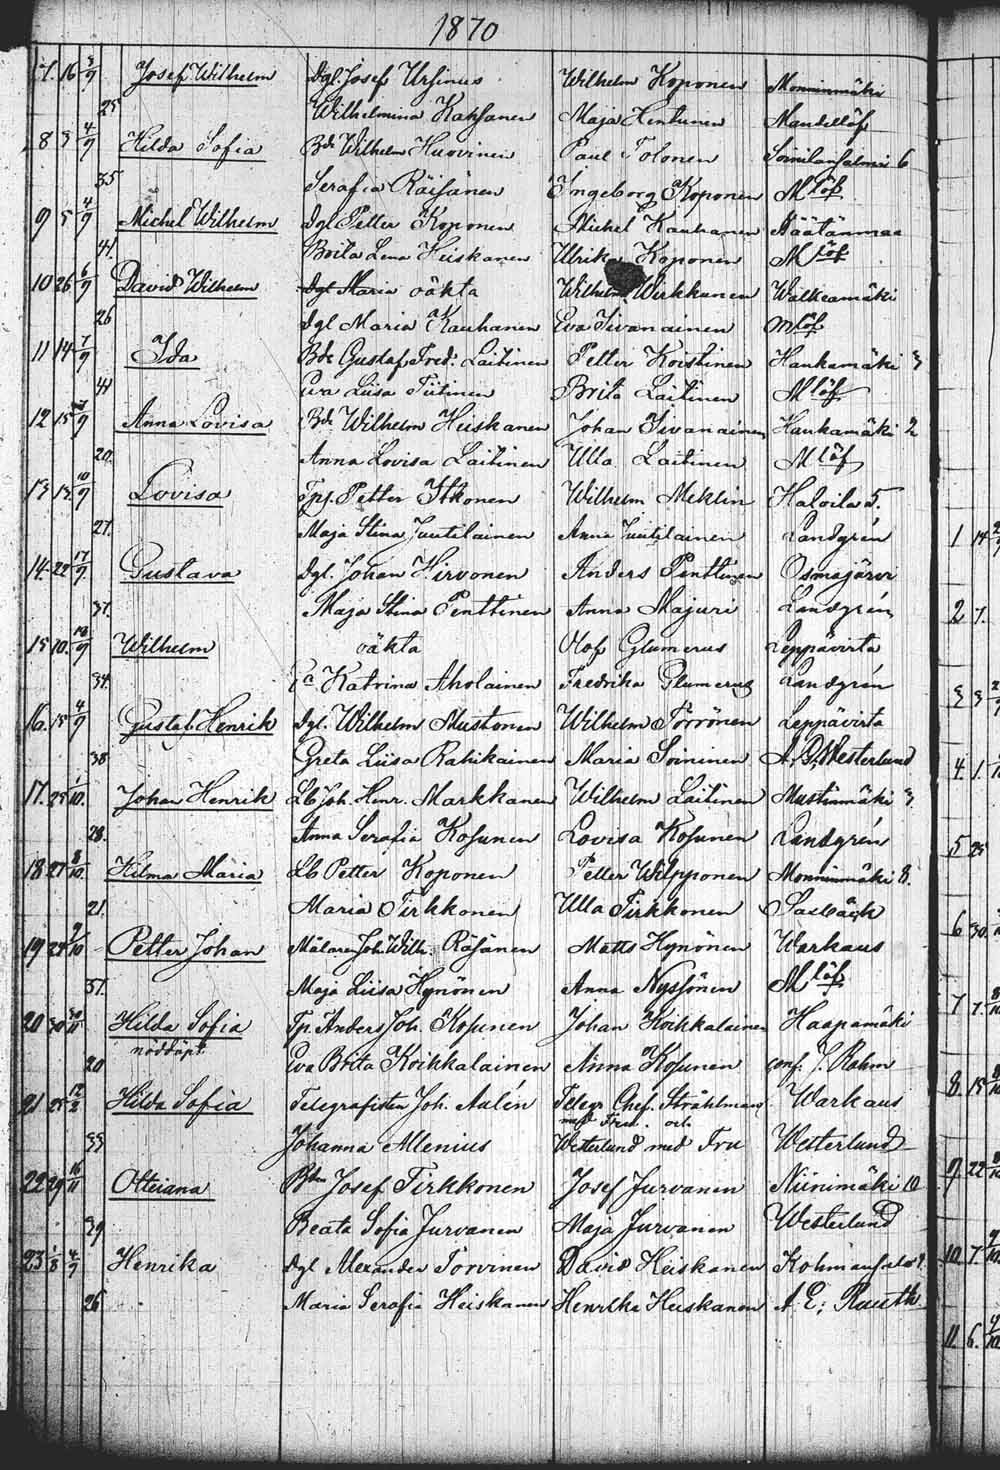 1870
7. 16 3/9 Josef Wilhelm Dgl. Josef Ursinus Wilhelm Koponen Monninmäki
25 Wilhelmina Kahsanen Maja Hentunen Mandellöf
8 3 4/9 Hilda Sofia Bde Wilhelm Huovinen Paul Tolonen Soinilansalmi 6
35 Serafia Räisänen Ingeborg Koponen M löf
9 5 4/9 Michel Wilhelm Dgl Petter Koponen Michel Kauhanen Häätänmaa
41. Brita Lena Heiskanen Ulrika Koponen M löf
10 26 6/9 David Wilhelm Dgl Maria oäkta Wilhelm Wirkkunen Walkeamäki
26 Dgl Maria Kauhanen Eva Sivanainen M löf
11 14 7/9 Ida Bde Gustaf Fred. Laitinen Petter Koistinen Hankamäki 3
41 Eva Liisa Tiitinen Brita Laitinen M löf
12 15 7/9 Anna Lovisa Bde Wilhelm Heiskanen Johan Sivanainen Hankamäki 2
20. Anna Lovisa Laitinen Ulla Laitinen M löf
13 13 10/9 Lovisa Tpf. Petter Itkonen Wilhelm Meklin Haloila 5.
27. Maja Stina Juutilainen Anna Juutilainen Landgrén
14. 22 17/9 Gustava Dgl. Johan Hirvonen Anders Penttinen Osmajärvi
37. Maja Stina Penttinen Anna Majuri Landgrén
15 10. 18/9 Wilhelm oäkta Olof Glumerus Leppävirta
34. Katrina Aholainen Fredrika Glumerus Landgrén
16. 15 4/9 Gustaf Henrik Dgl. Wilhelm Mustonen Wilhelm Törrönen Leppävirta
38 Greta Liisa Rahikainen Maria Soininen A. D. Westerlund
17. 25 1/10. Johan Henrik Lb Joh. Henr. Markkanen Wilhelm Laitinen Mustinmäki 3
28. Anna Serafia Kosunen Lovisa Kosunen Landgrén
18 27 8/10. Hilma Maria Lb Petter Koponen Petter Wilpponen Monninmäki 8.
21. Maria Tirkkonen Ulla Tirkkonen
19 24 9/10 Petter Johan Målaren Joh. Wilh. Räsänen Matts Hynönen Warkaus
37. Maja Liisa Hynönen Anna Nyssönen M löf
20 30 30/11 Hilda Sofia Tp. Anders Joh. Kosunen Johan Koikkalainen Haapamäki
nöddöpt.
20 Eva Brita Koikkalainen Anna Kosunen conf. J. Rahm
21 25 12/2 Hilda Sofia Telegrafisten Joh. Aalén Telegr Chef. Stråhlman Warkaus
med Fru. och
33 Johanna Allenius Westerlund med Fru Westerlund
22 29 16/11 Otteiana Btn Josef Tirkkonen Josef Jurvanen Niinimäki 10
39 Beata Sofia Jurvanen Maja Jurvanen Westerlund
23 1/8 4/9 Henrika Dgl Alexander Torvinen David Heiskanen
26 Maria Serafia Heiskanen Henrika Heiskanen A. E.
1 14
2 7.
3 3
4. 1.
5 25
6 30.
7 7.
8. 15
9 22
10. 7.
11. 6.